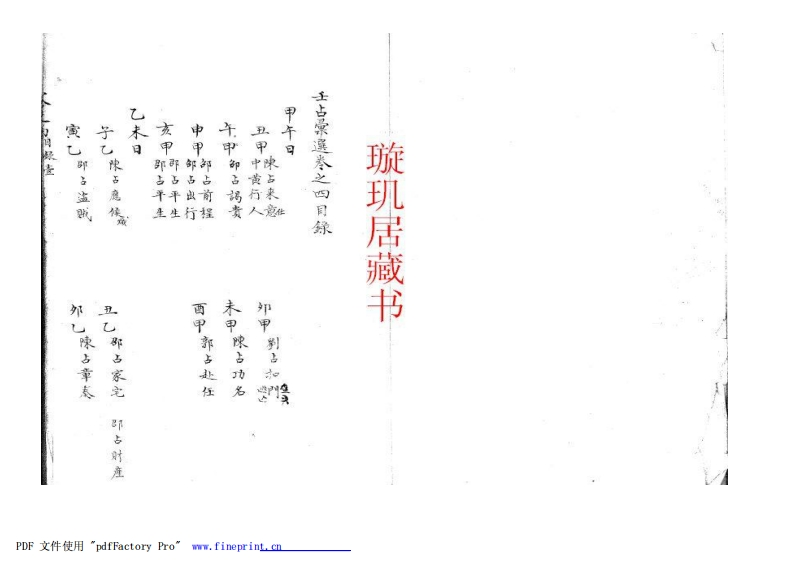 壬占彙選卷之四目錄
甲午日
丑甲 陳占來意 仕
中黃行人
卯甲 劉占
午甲 邵占謁貴
未甲 陳占功名
申甲 邵占前程
邵占出行
酉甲 郭占赴任
亥甲 邵占平生
邵占平生
乙未日
子乙 陳占應候
丑乙 邵占家宅 邵占財產
寅乙 邵占盜賊
卯乙 陳占章奏
目錄壹
璇玑居藏书
PDF 文件使用 "pdfFactory Pro" www.fineprint.cn